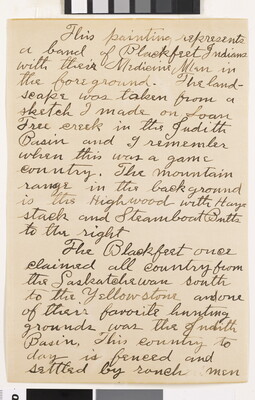 This painting represents
a band of Blackfeet Indians
with their Medicine Man in
the foreground. The land-
scape was taken from a
sketch I made on Loan
Tree creek in the Judith
Basin and I remember
when this was a game
country. The mountain
range in the background
is the Highwood with Haye
stack and Steamboat Butts
to the right
The Blackfeet once
claimed all country from
the Saskatchewan south
to the Yellowstone and one
of their favorite hunting
grounds was the Judith
Basin. This country to
day is fenced and
settled by ranch men